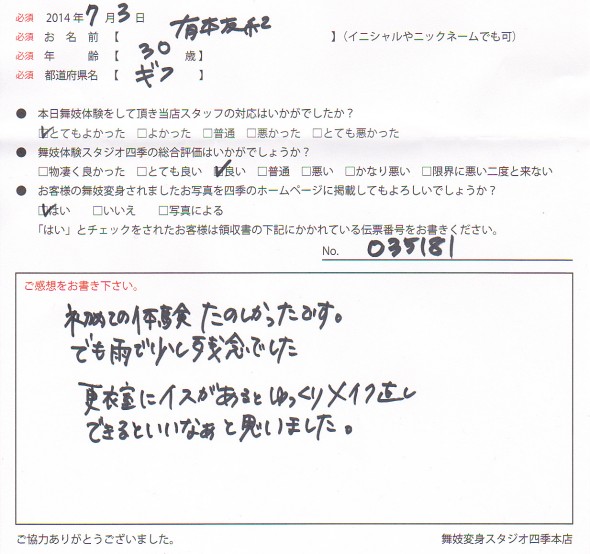 必須 2014年7月3日
必須 お 名 前 【 有本友和 】(イニシャルやニックネームでも可)
必須 年 齢 【 30 歳】
必須 都道府県名 【 ギフ 】
● 本日舞妓体験をして頂き当店スタッフの対応はいかがでしたか?
☑とてもよかった □よかった □普通 □悪かった □とても悪かった
● 舞妓体験スタジオ四季の総合評価はいかがでしょうか?
□物凄く良かった □とても良い ☑良い □普通 □悪い □かなり悪い □限界に悪い二度と来ない
● お客様の舞妓変身されましたお写真を四季のホームページに掲載してもよろしいでしょうか?
☑はい □いいえ □写真による
「はい」とチェックをされたお客様は領収書の下記にかかれている伝票番号をお書きください。
No. 035181
ご感想をお書き下さい。
初めての体験 たのしかったです。
でも雨で少し残念でした
更衣室にイスがあるとゆっくりメイク直し
できるといいなぁと思いました。
ご協力ありがとうございました。
舞妓変身スタジオ四季本店